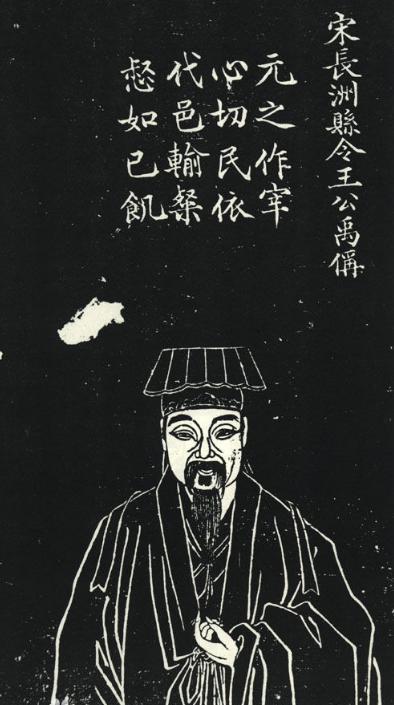 宋長洲縣令王公禹偁
元之作宰
心切民依
代邑輸粲
惄如已飢